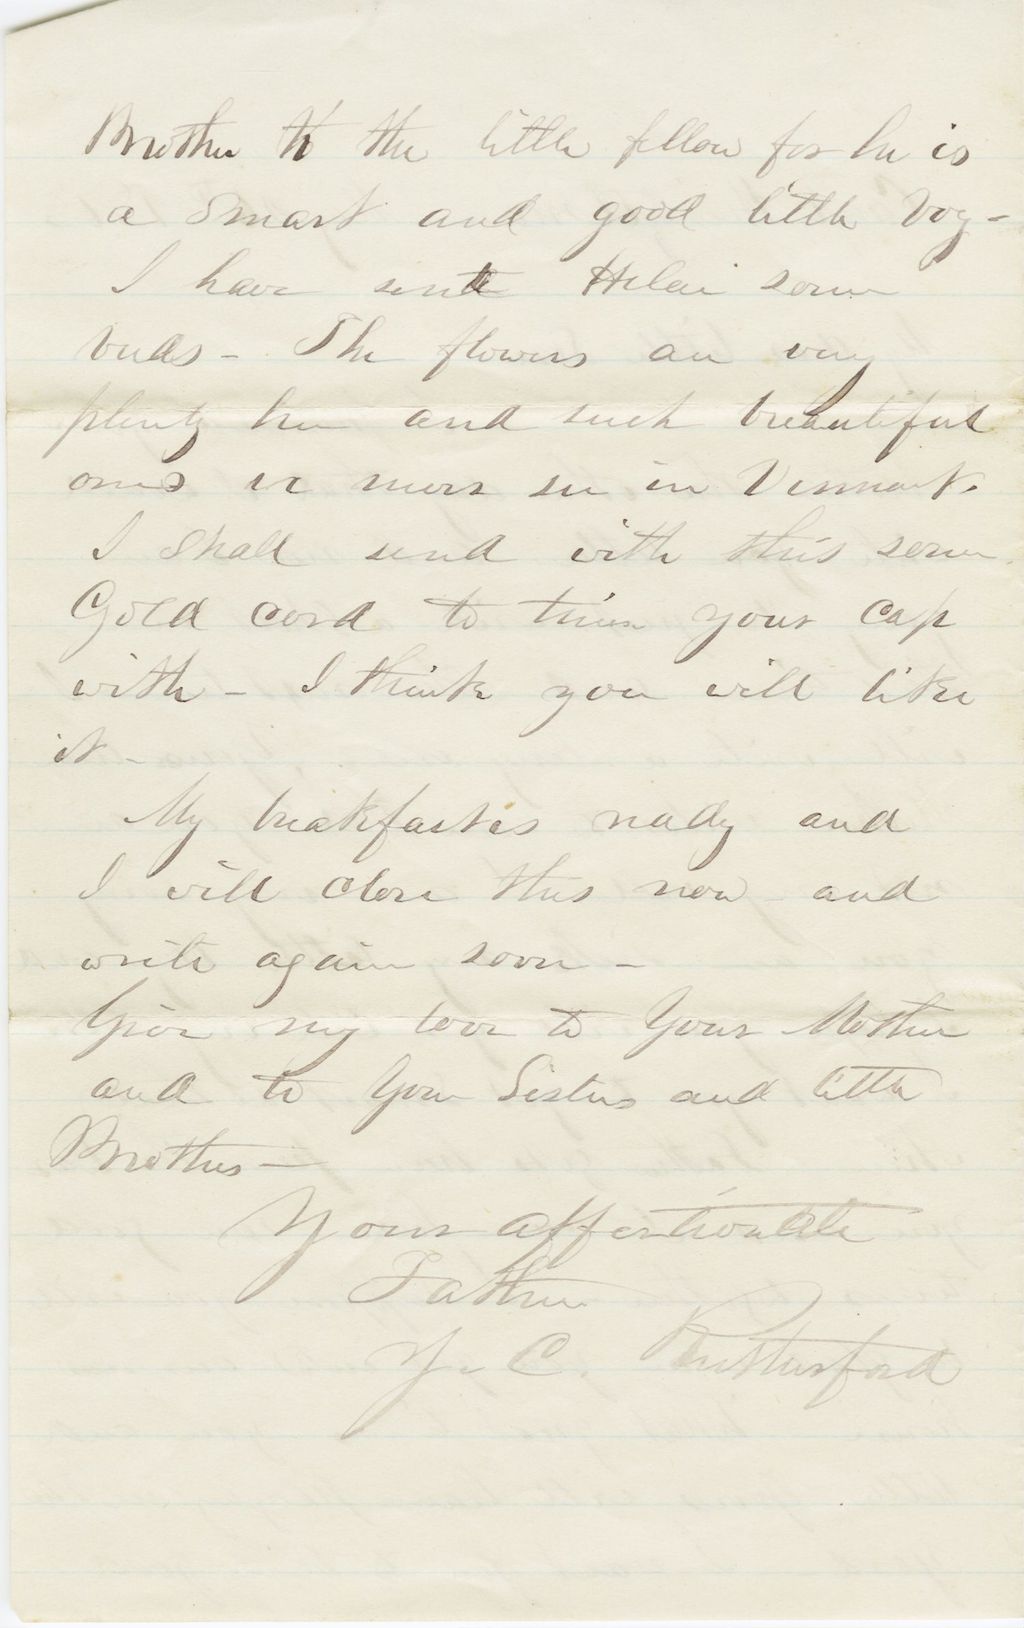 Brother to the little fellow for he is
a smart and good little boy -
I have sent Helen some
buds - The flowers are very
plenty here and such beautiful
ones we never see in Vermont.
I shall send with this some
Gold cord to trim your cap
with - I think you will like
it -
My breakfast is ready and
I will close this now and
write again soon -
Give my love to Your Mother
and to Your Sisters and little
Brother -
Your affectionate
Father
J. C. Rutherford